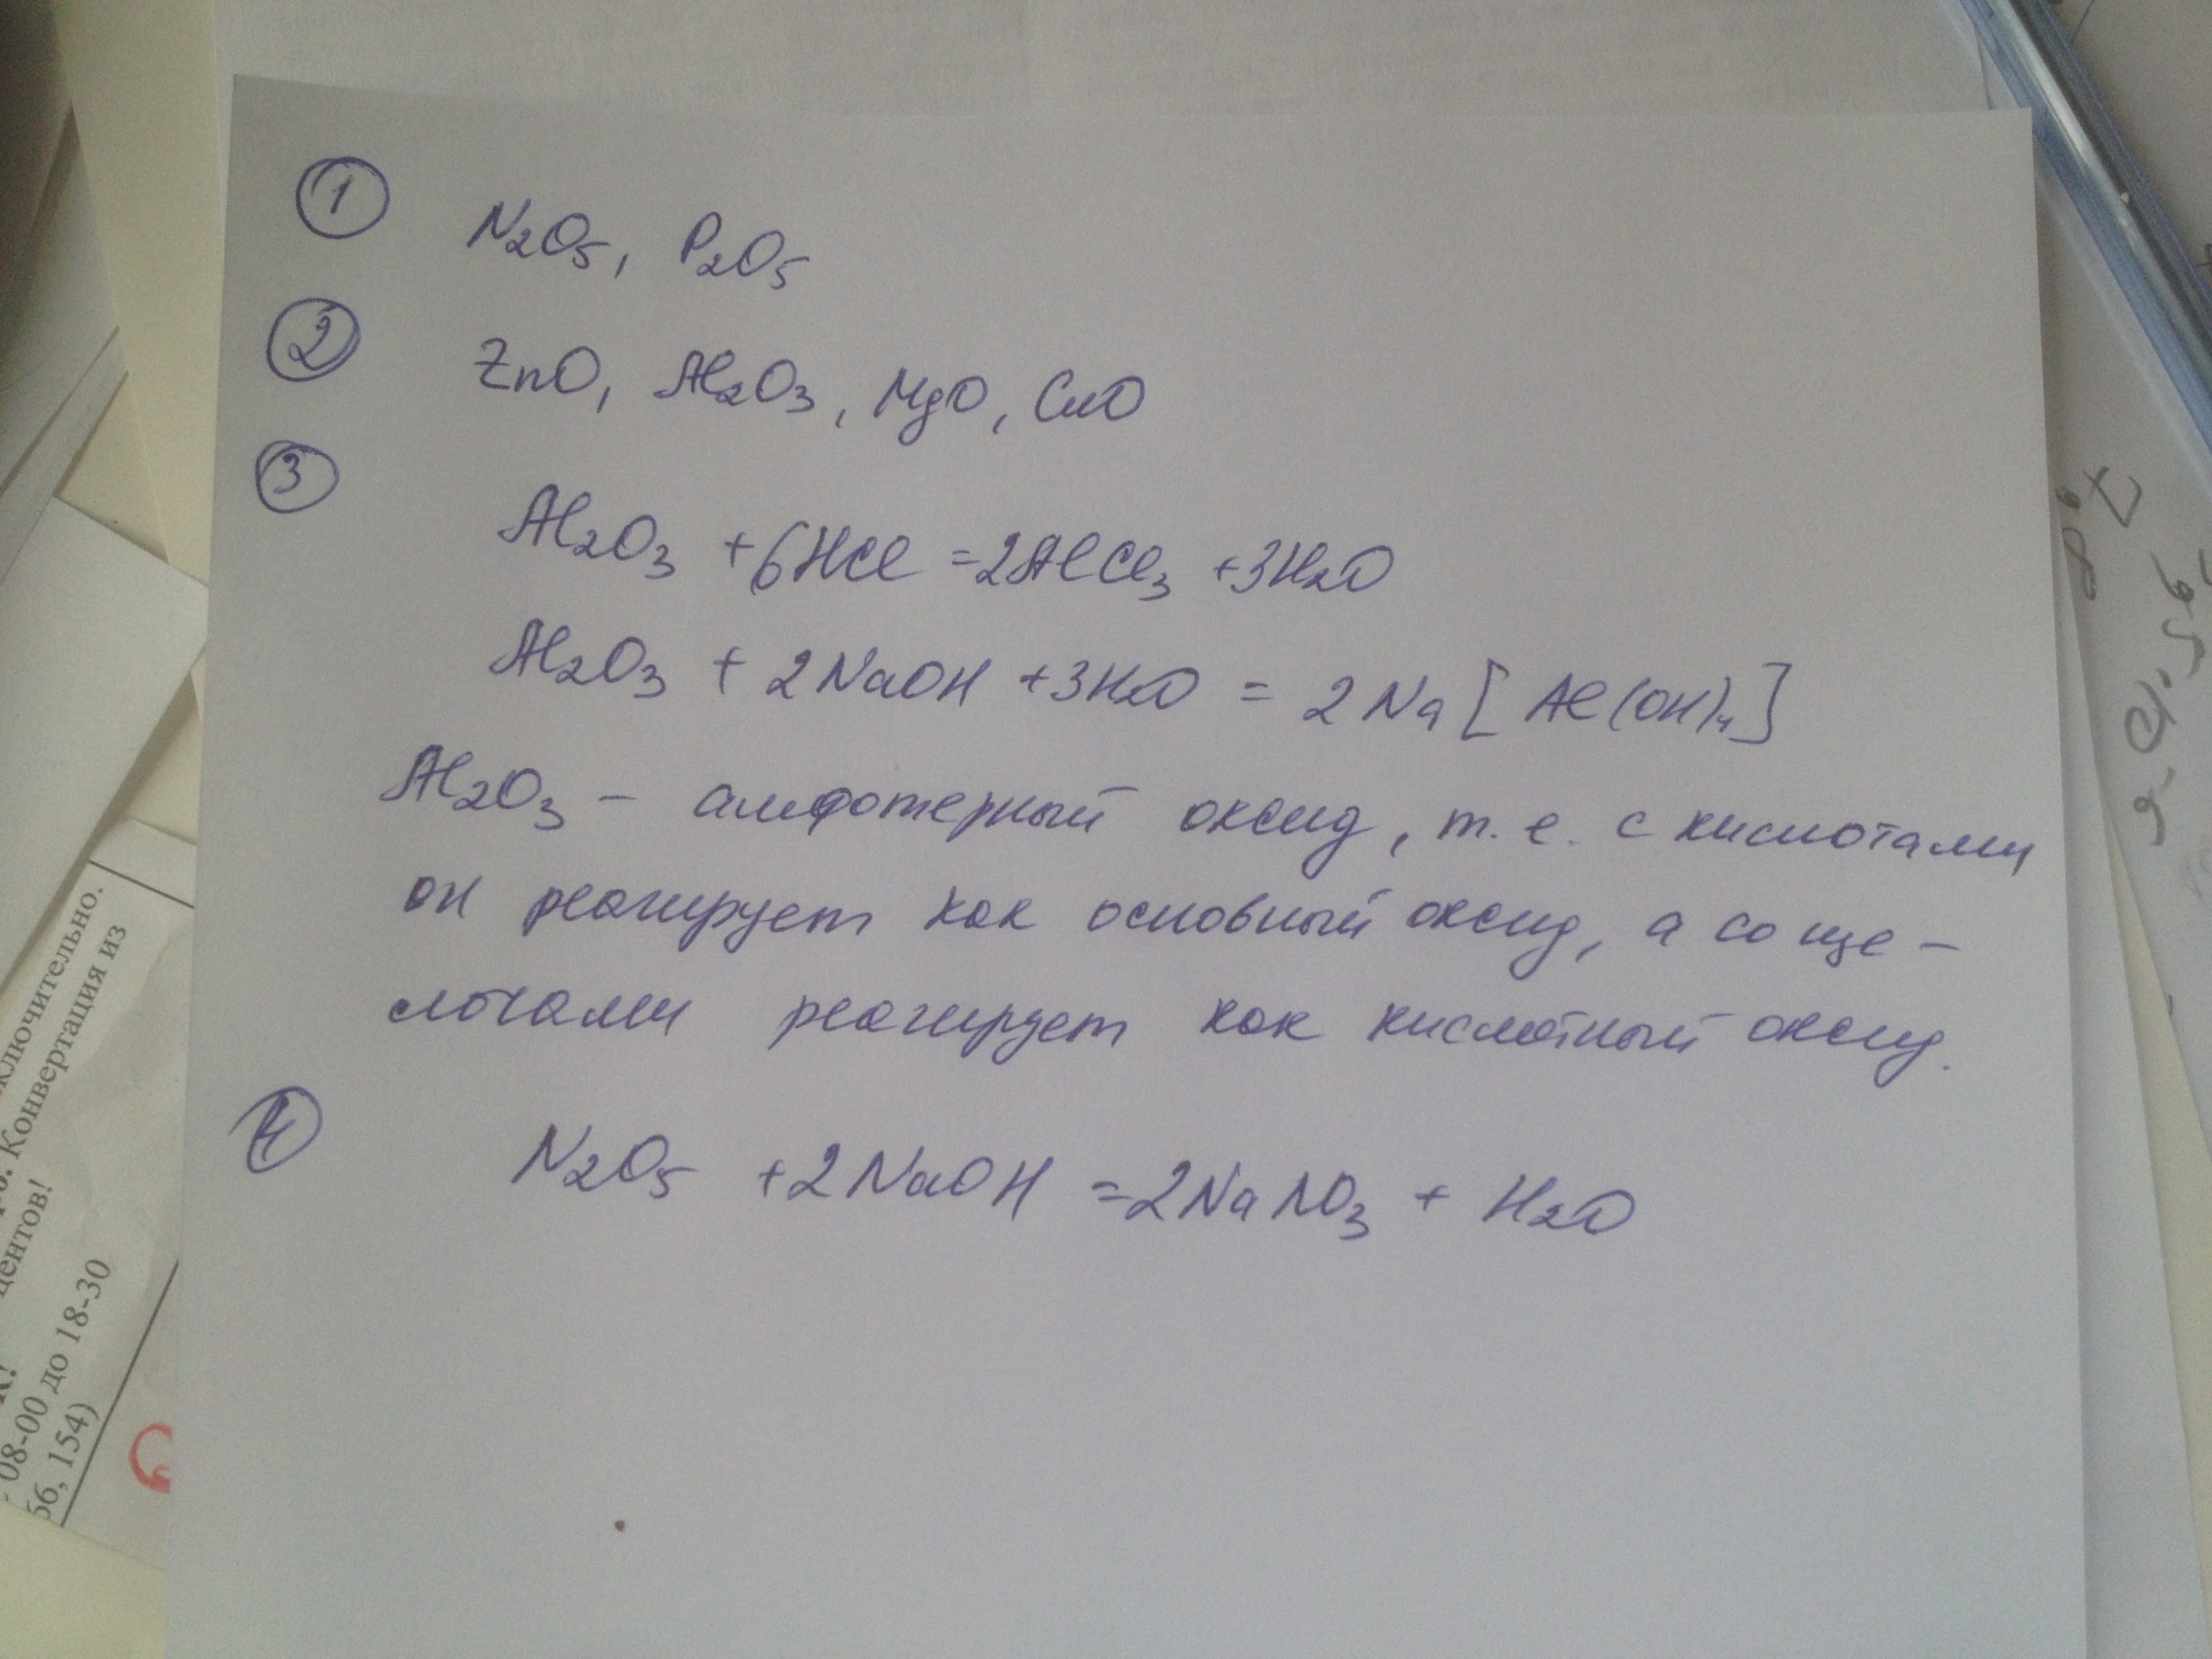 1 N₂O₅, P₂O₅
2 ZnO, Al₂O₃, MgO, CuO
3
Al₂O₃ +6HCl =2AlCl₃ +3H₂O
Al₂O₃ + 2NaOH +3H₂O = 2Na[Al(OH)₄]
Al₂O₃ – амфотерный оксид, т.е. с кислотами
он реагирует как основный оксид, а со ще-
лочами реагирует как кислотный оксид.
4 N₂O₅ +2NaOH =2NaNO₃ + H₂O
ключительно.
Конвертация из
центов!
08-00 до 18-30
56, 154)